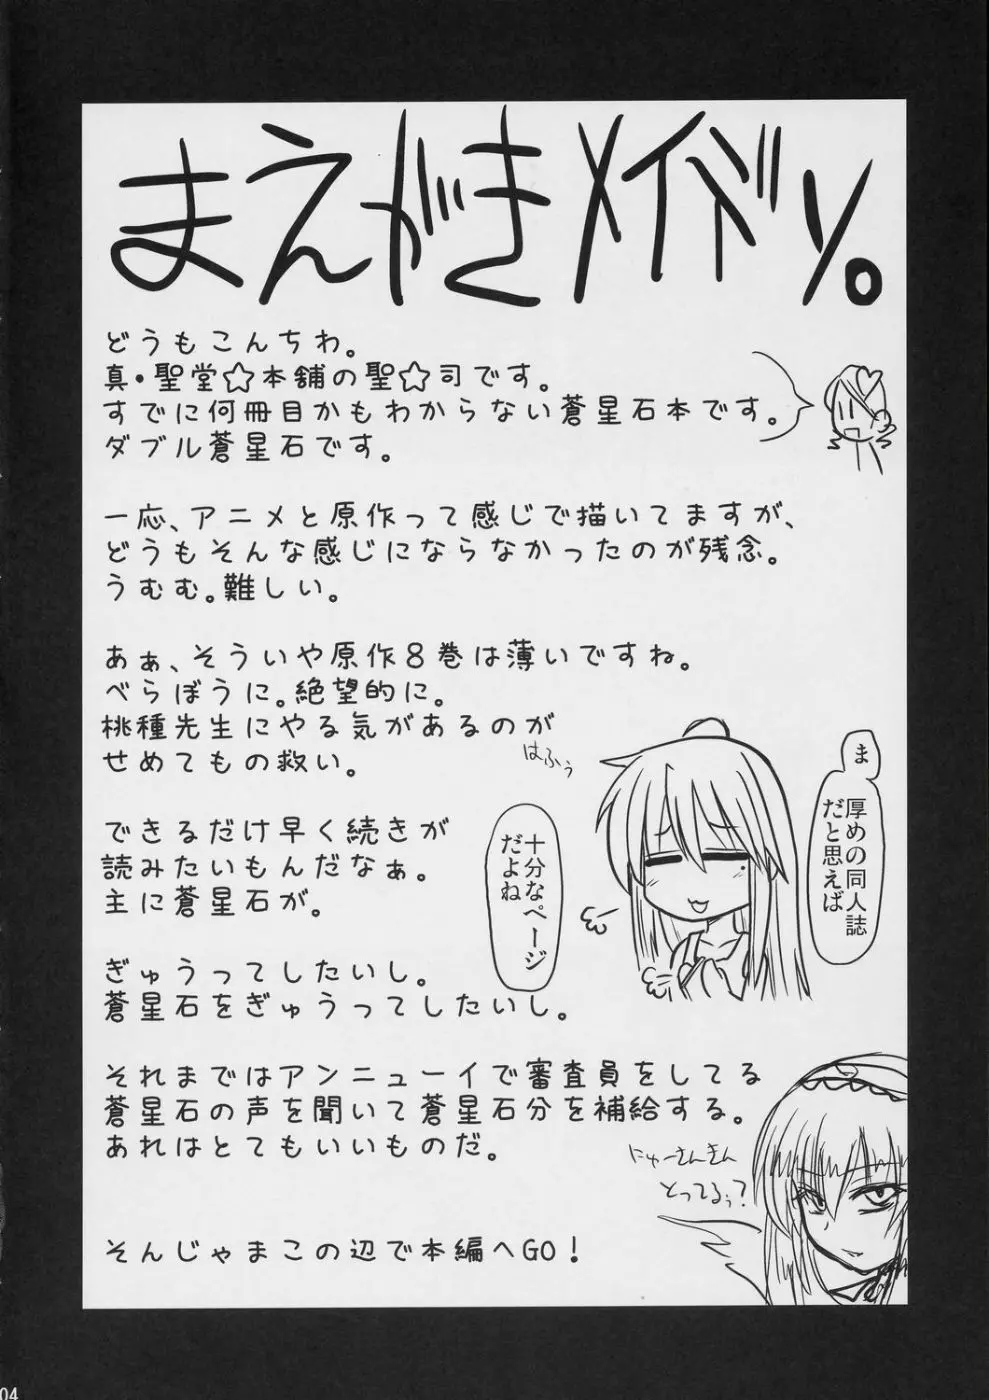 まえがきメイドリ。
どうもこんちわ。
真・聖堂☆本舗の聖☆司です。
すでに何冊目かもわからない蒼星石本です。
ダブル蒼星石です。
一応、アニメと原作って感じで描いてますが、
どうもそんな感じにならなかったのが残念。
うむむ。難しい。
あぁ、そういや原作8巻は薄いですね。
べらぼうに。絶望的に。
桃種先生にやる気があるのが
せめてもの救い。
ま
厚めの同人誌
だと思えば
はふぅ
十分なページ
だよね
できるだけ早く続きが
読みたいもんだなぁ。
主に蒼星石が。
ぎゅうってしたいし。
蒼星石をぎゅうってしたいし。
それまではアンニューイで審査員をしてる
蒼星石の声を聞いて蒼星石分を補給する。
あれはとてもいいものだ。
にゅーさんきん
とってるぅ?
そんじゃまこの辺で本編へGO!
04